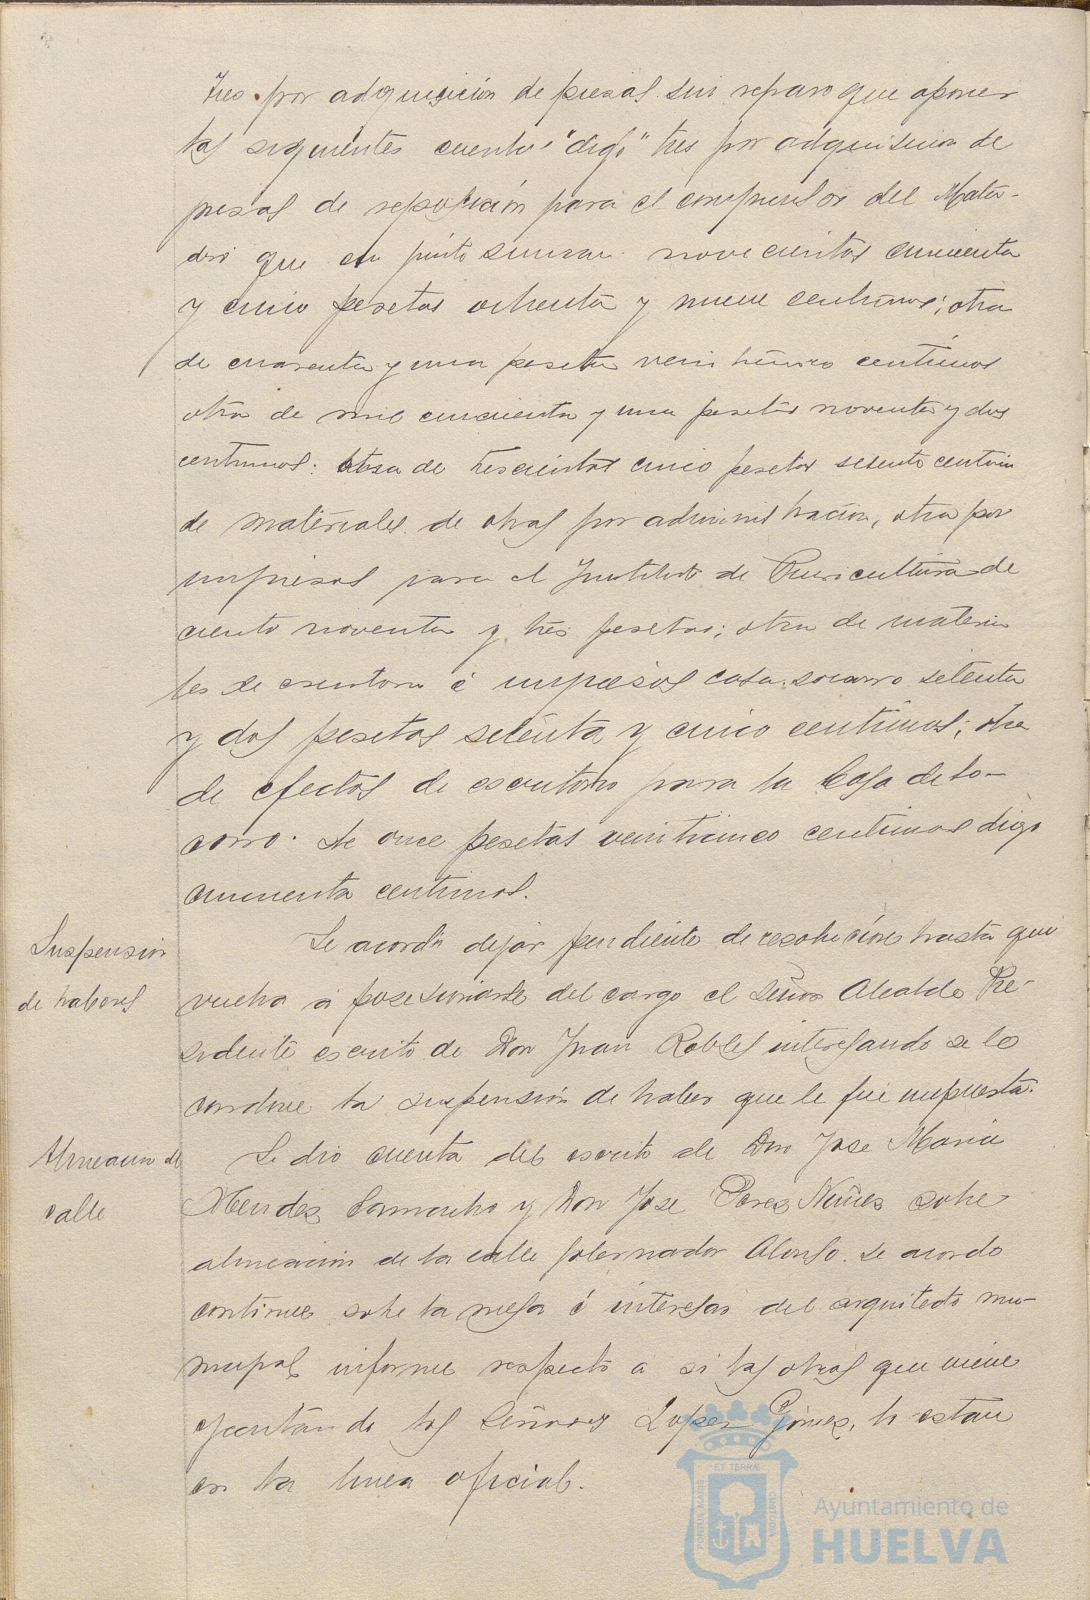 tres por adquisición de piezas sin reparo que oponer
las siguientes cuentas "digo" tres por adquisicion de
piezas de reposición para el compresor del Mata-
dero que en junto suman novecientas cincuenta
y cinco pesetas ochenta y nueve centimos; otra
de cuarenta y una peseta veinticinco centimos
otra de mil cincuenta y una pesetas noventa y dos
centimos: otra de trescientas cinco pesetas setenta centim
de materiales de obras por administración, otra por
impresos para el Instituto de Puericultura de
ciento noventa y tres pesetas; otra de materia
les de escritorio é impresos casa socorro setenta
y dos pesetas setenta y cinco centimos; otra
de efectos de escritorio para la Casa de So-
corro de once pesetas veinticinco centimos digo
cincuenta centimos.
Suspensión
de haberes
Se acordó dejar pendiente de resolución hasta que
vuelva á posesionarse del cargo el Señor Alcalde Pre-
sidente escrito de Don Juan Robles interesando se le
condone la suspensión de haber que le fue impuesta.
Alineacion de
calle
Se dio cuenta del escrito de Don Jose Maria
Mendez Camacho y Don Jose Perez Nuñez sobre
alineación de la calle Gobernador Alonso. Se acordo
continue sobre la mesa é interesar del arquitecto mu-
nicipal informe respecto a si las obras que viene
ejecutando los Señores Lopez Gomez, lo estan
en la linea oficial.
PORTUS MARIS
ET TERRAE
CUSTODIA
Ayuntamiento de
HUELVA